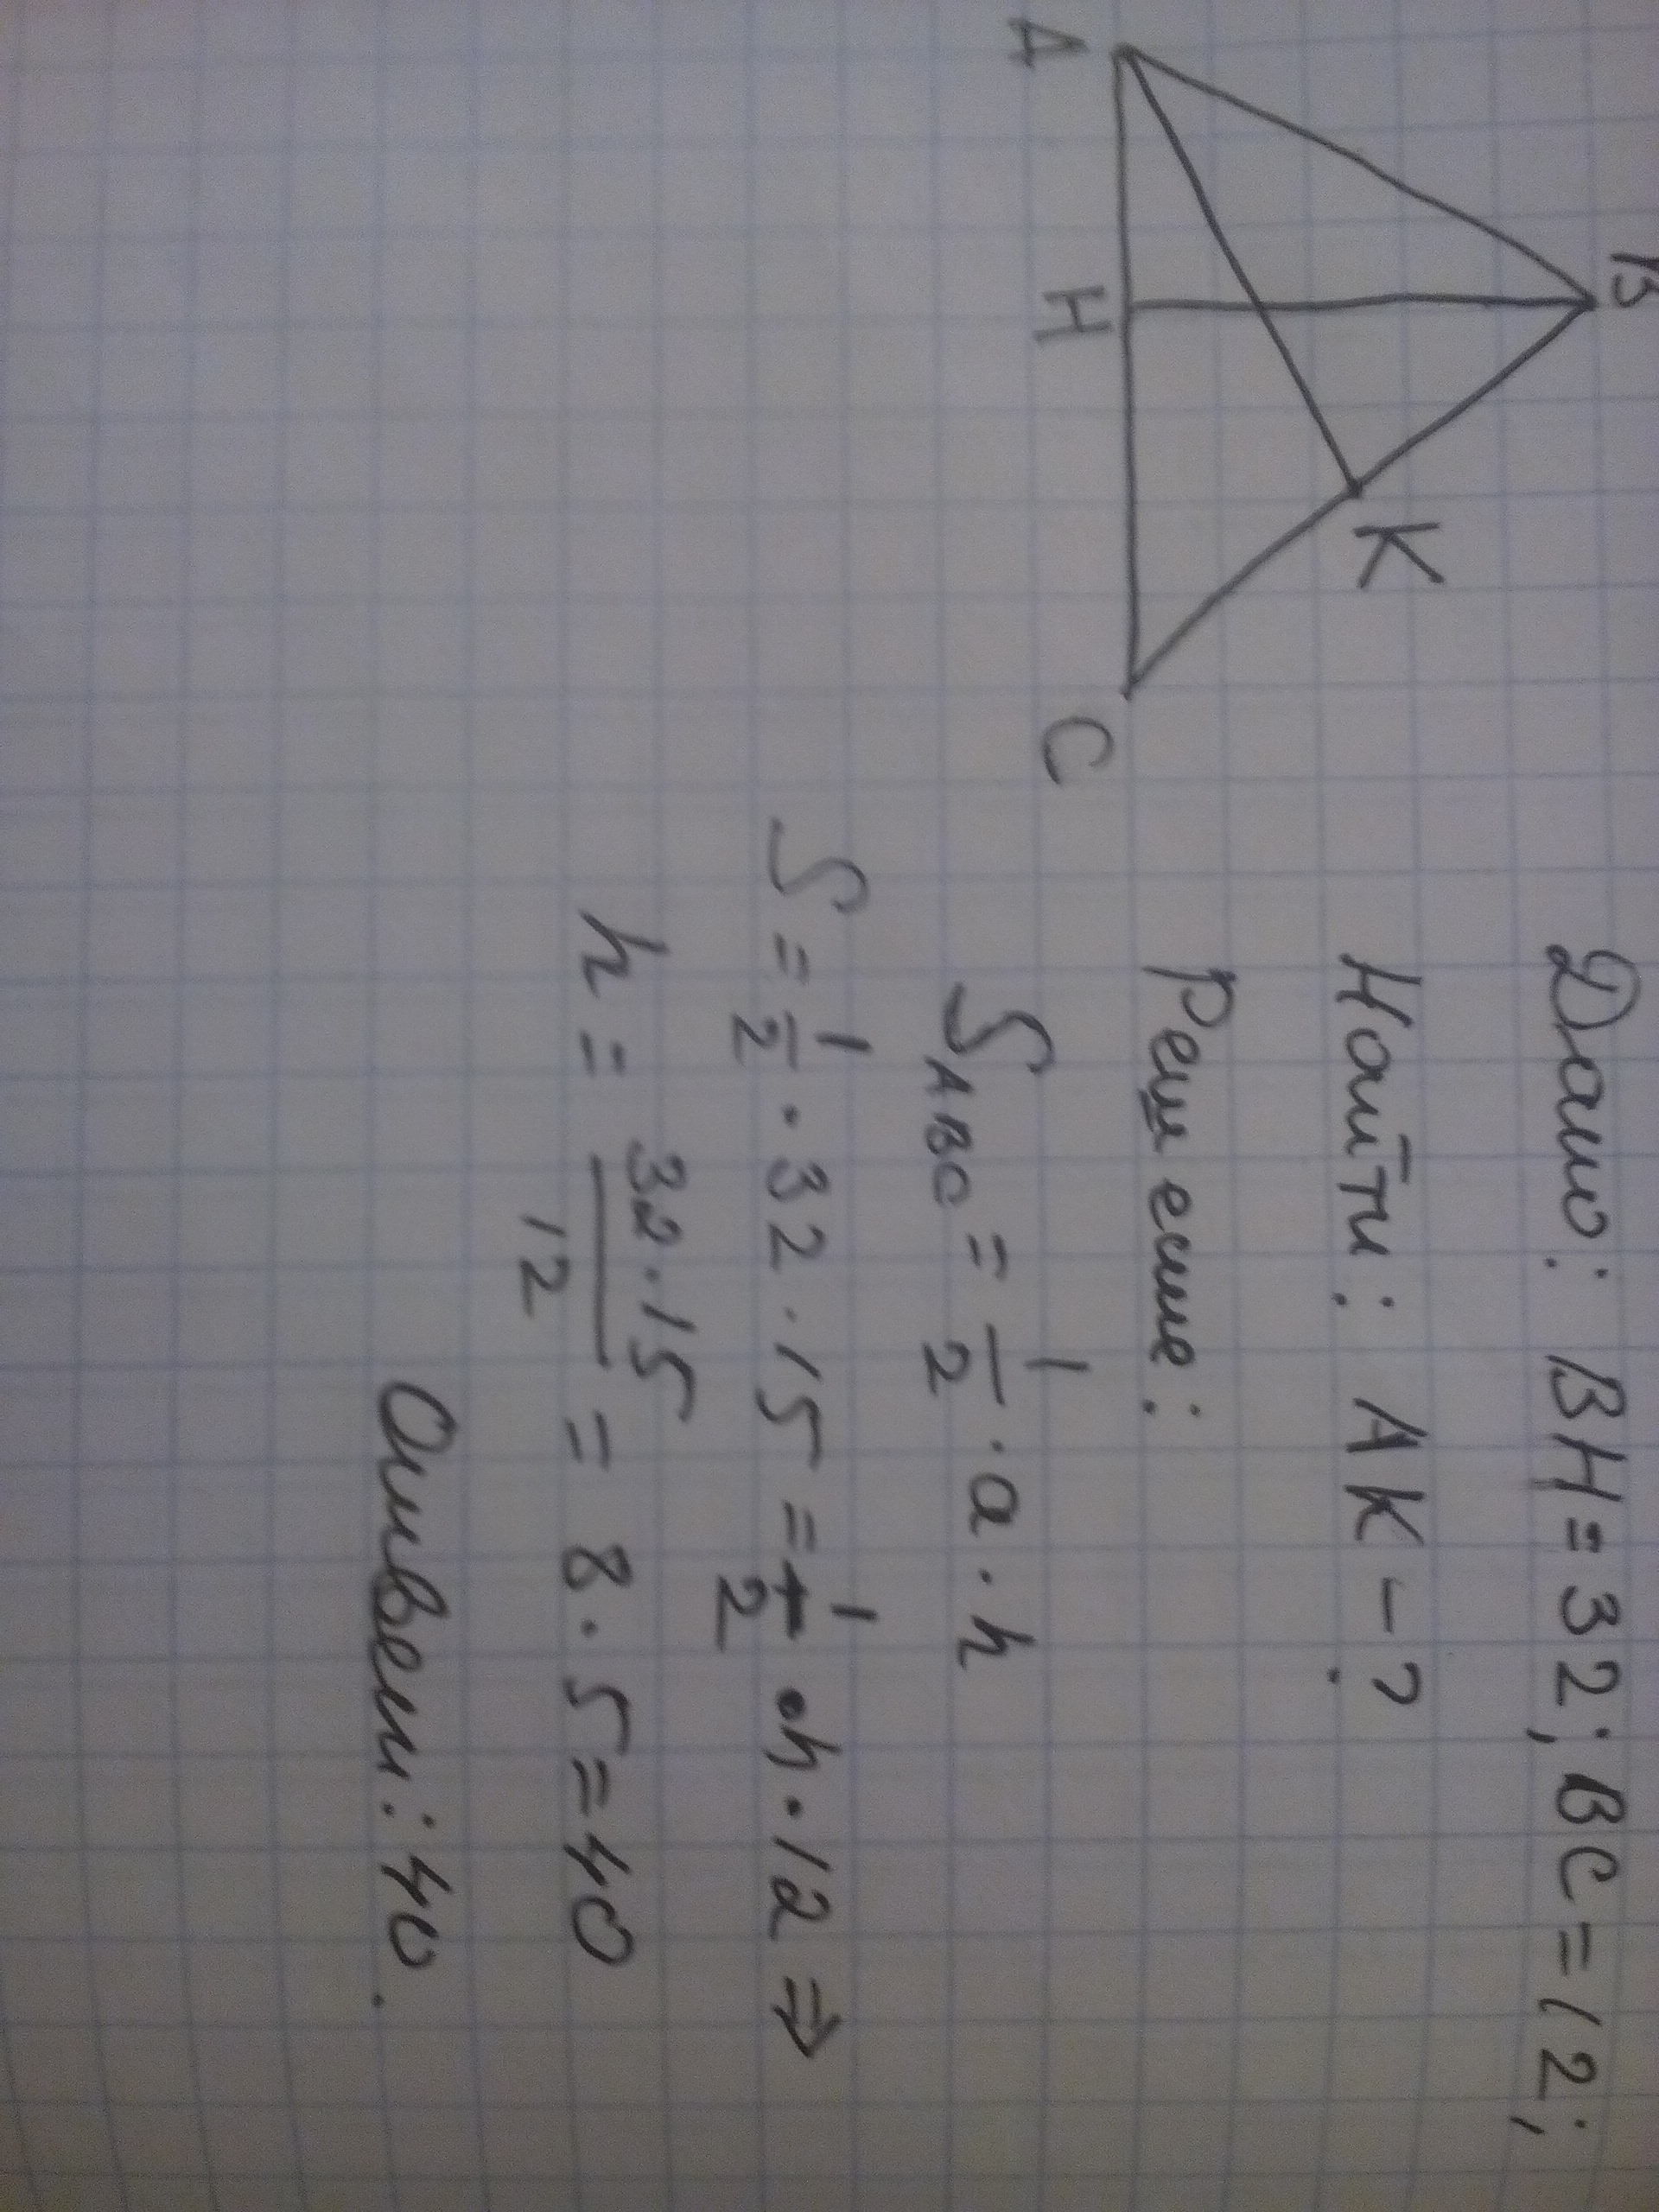 B
A
H
K
C
Дано: BH = 32; BC = 12;
Найти: AK - ?
Решение:
S ABC = 1/2 · a · h
S = 1/2 · 32 · 15 = 1/2 · h · 12 ⇒
h = 32 · 15 / 12 = 8 · 5 = 40
Ответ: 40.